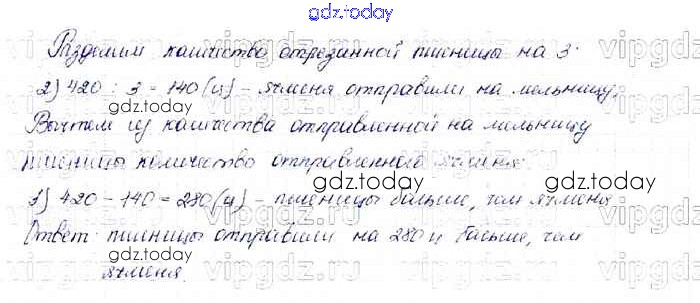 gdz.today
Разделим количество отрезанной пшеницы на 3.
2) 420 : 3 = 140 (ц) - ячменя отправили на мельницу.
gdz.today
Вычтем из количества отправленной на мельницу
пшеницы количество отправленного ячменя:
gdz.today
3) 420 - 140 = 280 (ц) - пшеницы больше, чем ячменя
gdz.today
Ответ: пшеницы отправили на 280 ц больше, чем
ячменя.
vipgdz.ru